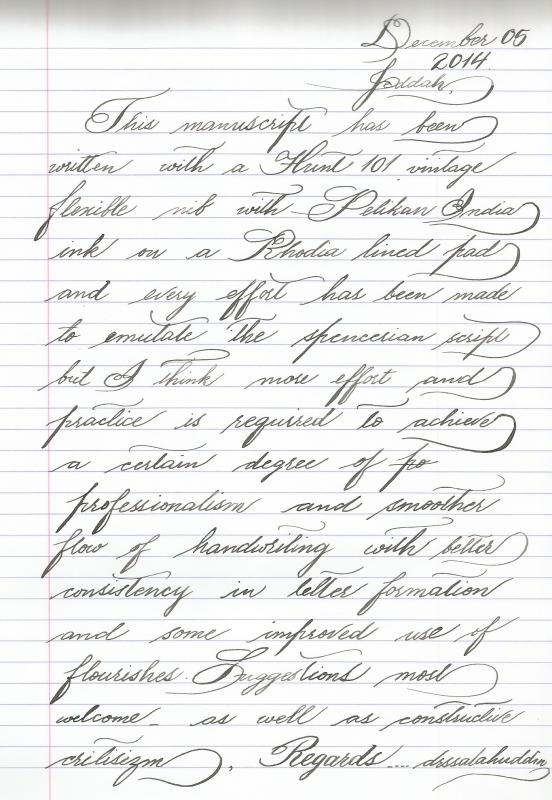 December 05
2014
Jeddah,
This manuscript has been
written with a Hunt 101 vintage
flexible nib with Pelikan India
ink on a Rhodia lined pad
and every effort has been made
to emulate the spencerian script
but I think more effort and
practice is required to achieve
a certain degree of po
professionalism and smoother
flow of handwriting with better
consistency in letter formation
and some improved use of
flourishes. Suggestions most
welcome - as well as constructive
critisizm, Regards .... drssalahuddin